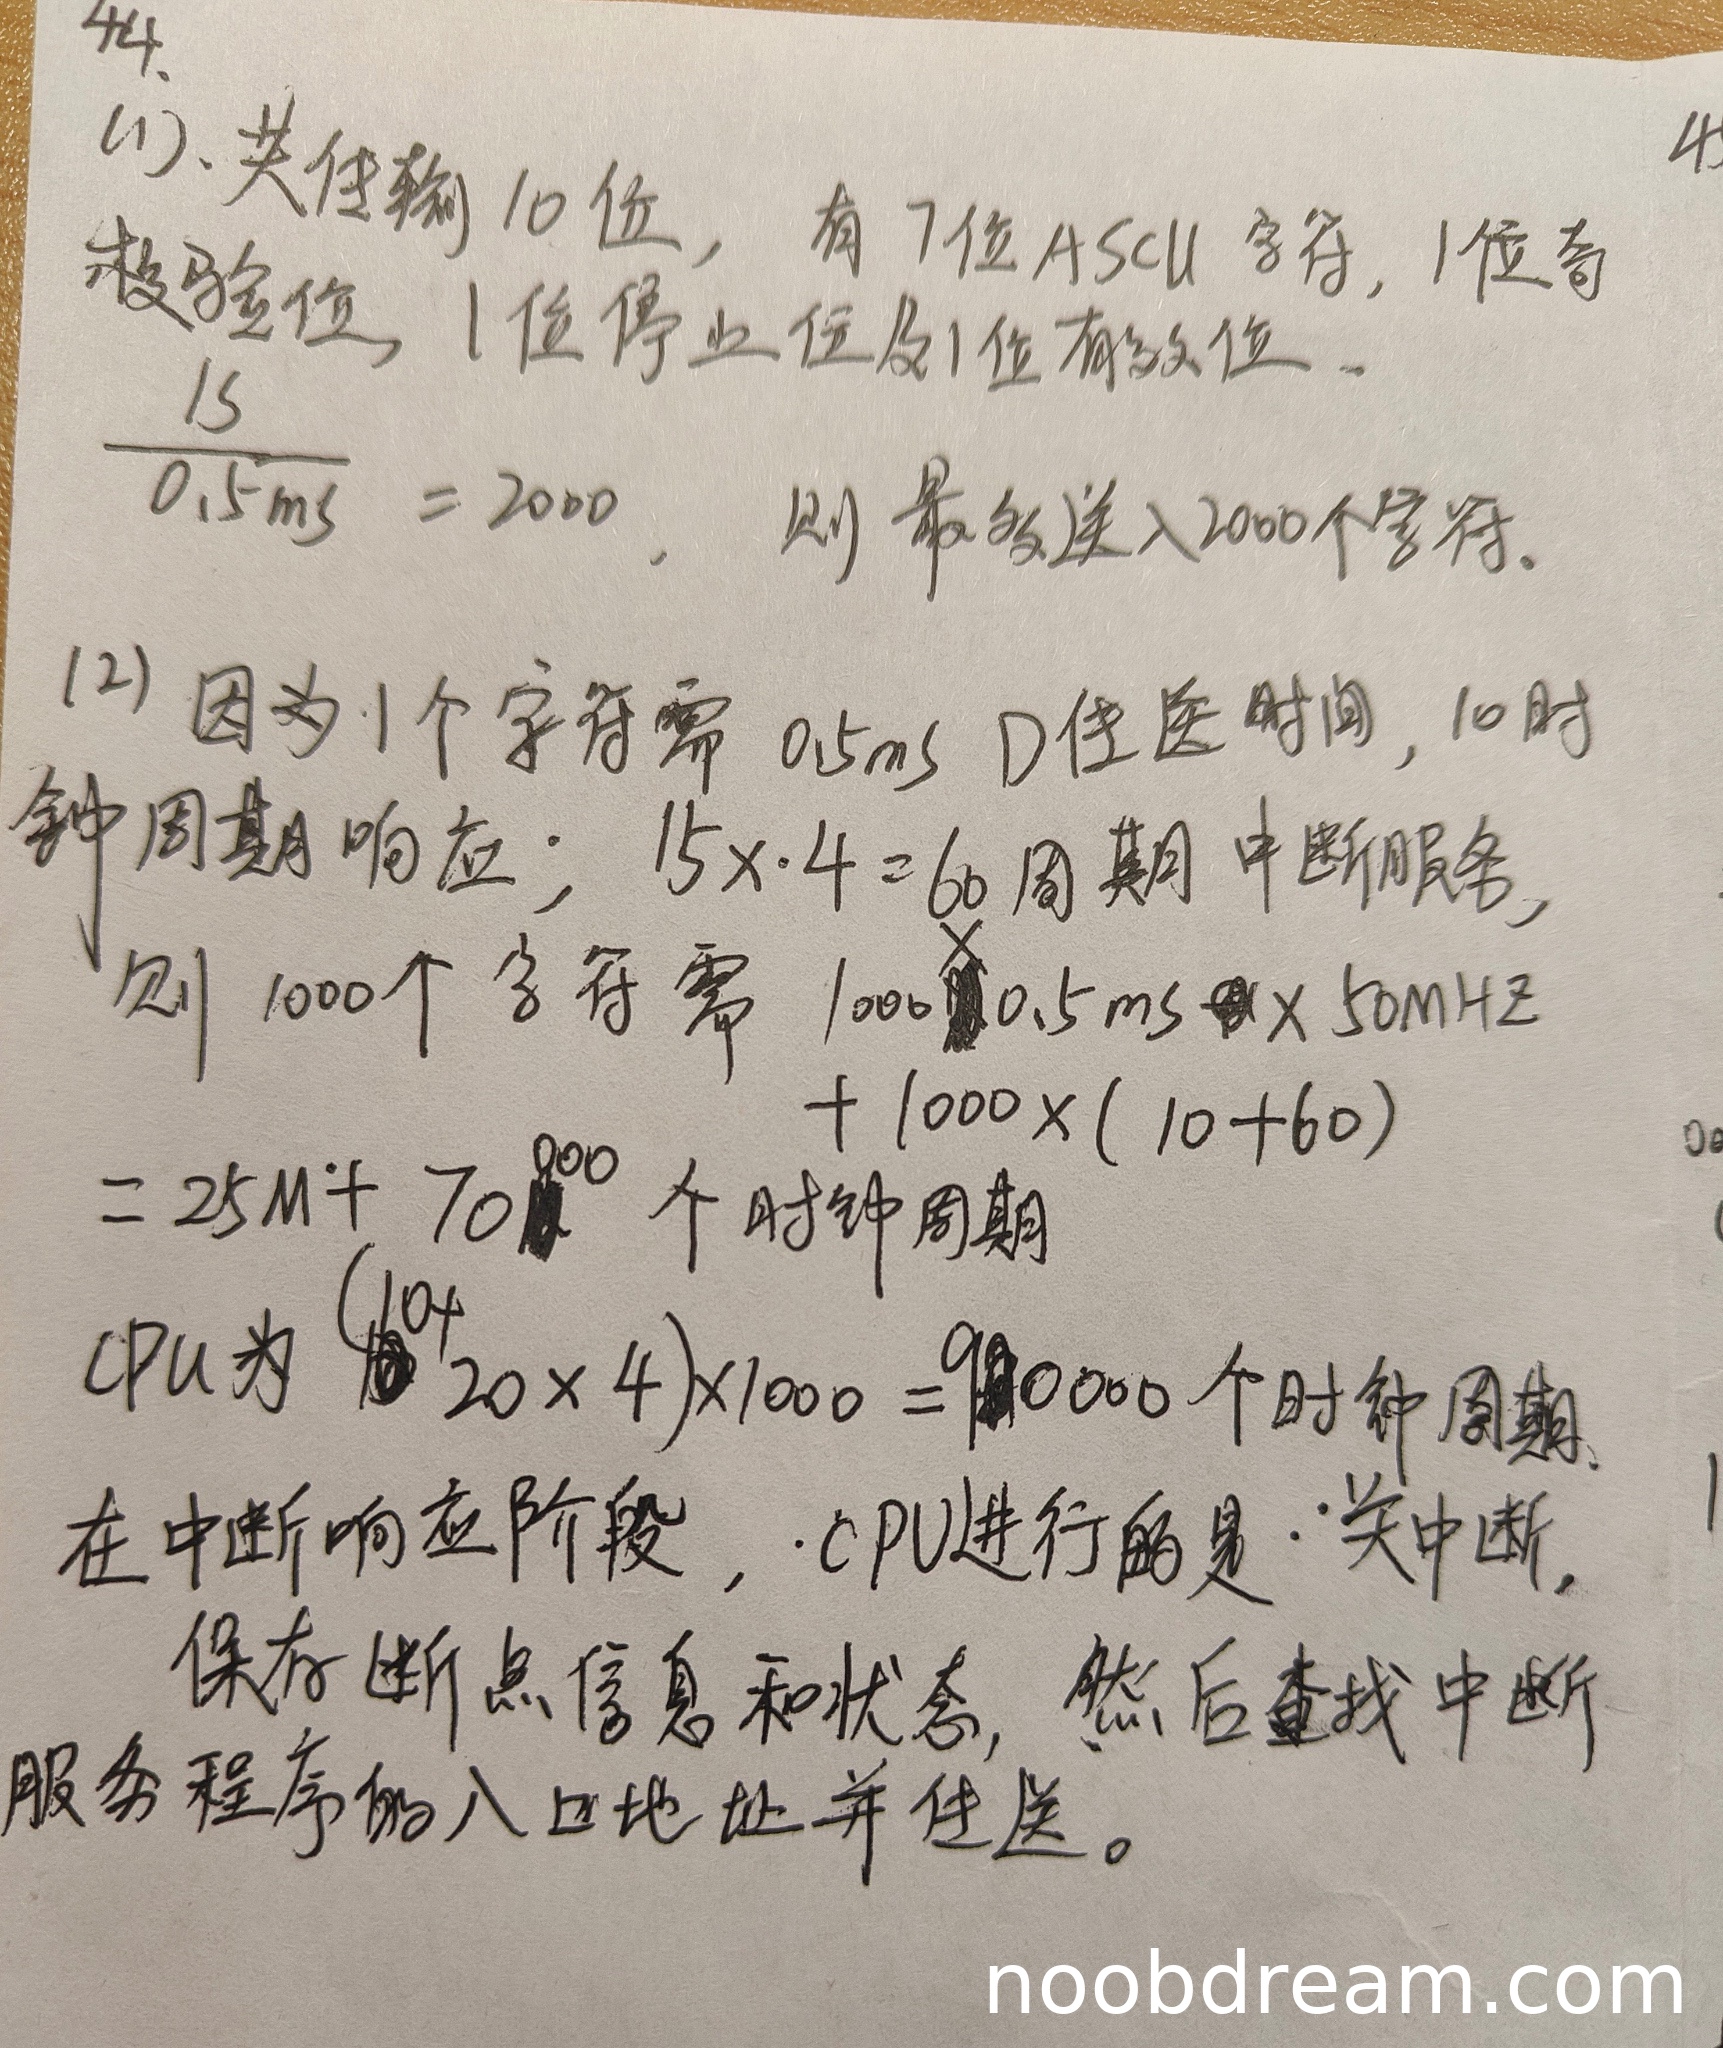 44.
(1)、共传输10位，有7位ASCII字符，1位奇
校验位，1位停止位及1位有效位.
1s
0.5ms = 2000，则最多送入2000个字符.
(2) 因为1个字符需 0.5ms D传送时间，10时
钟周期响应；15×4=60周期中断服务，
则1000个字符需 1000×0.5ms × 50MHZ
+ 1000×(10+60)
= 25M + 70000 个时钟周期
CPU为 (10+20×4)×1000 = 90000个时钟周期.
在中断响应阶段，CPU进行的是：关中断，
保存断点信息和状态，然后查找中断
服务程序的入口地址并传送。
noobdream.com